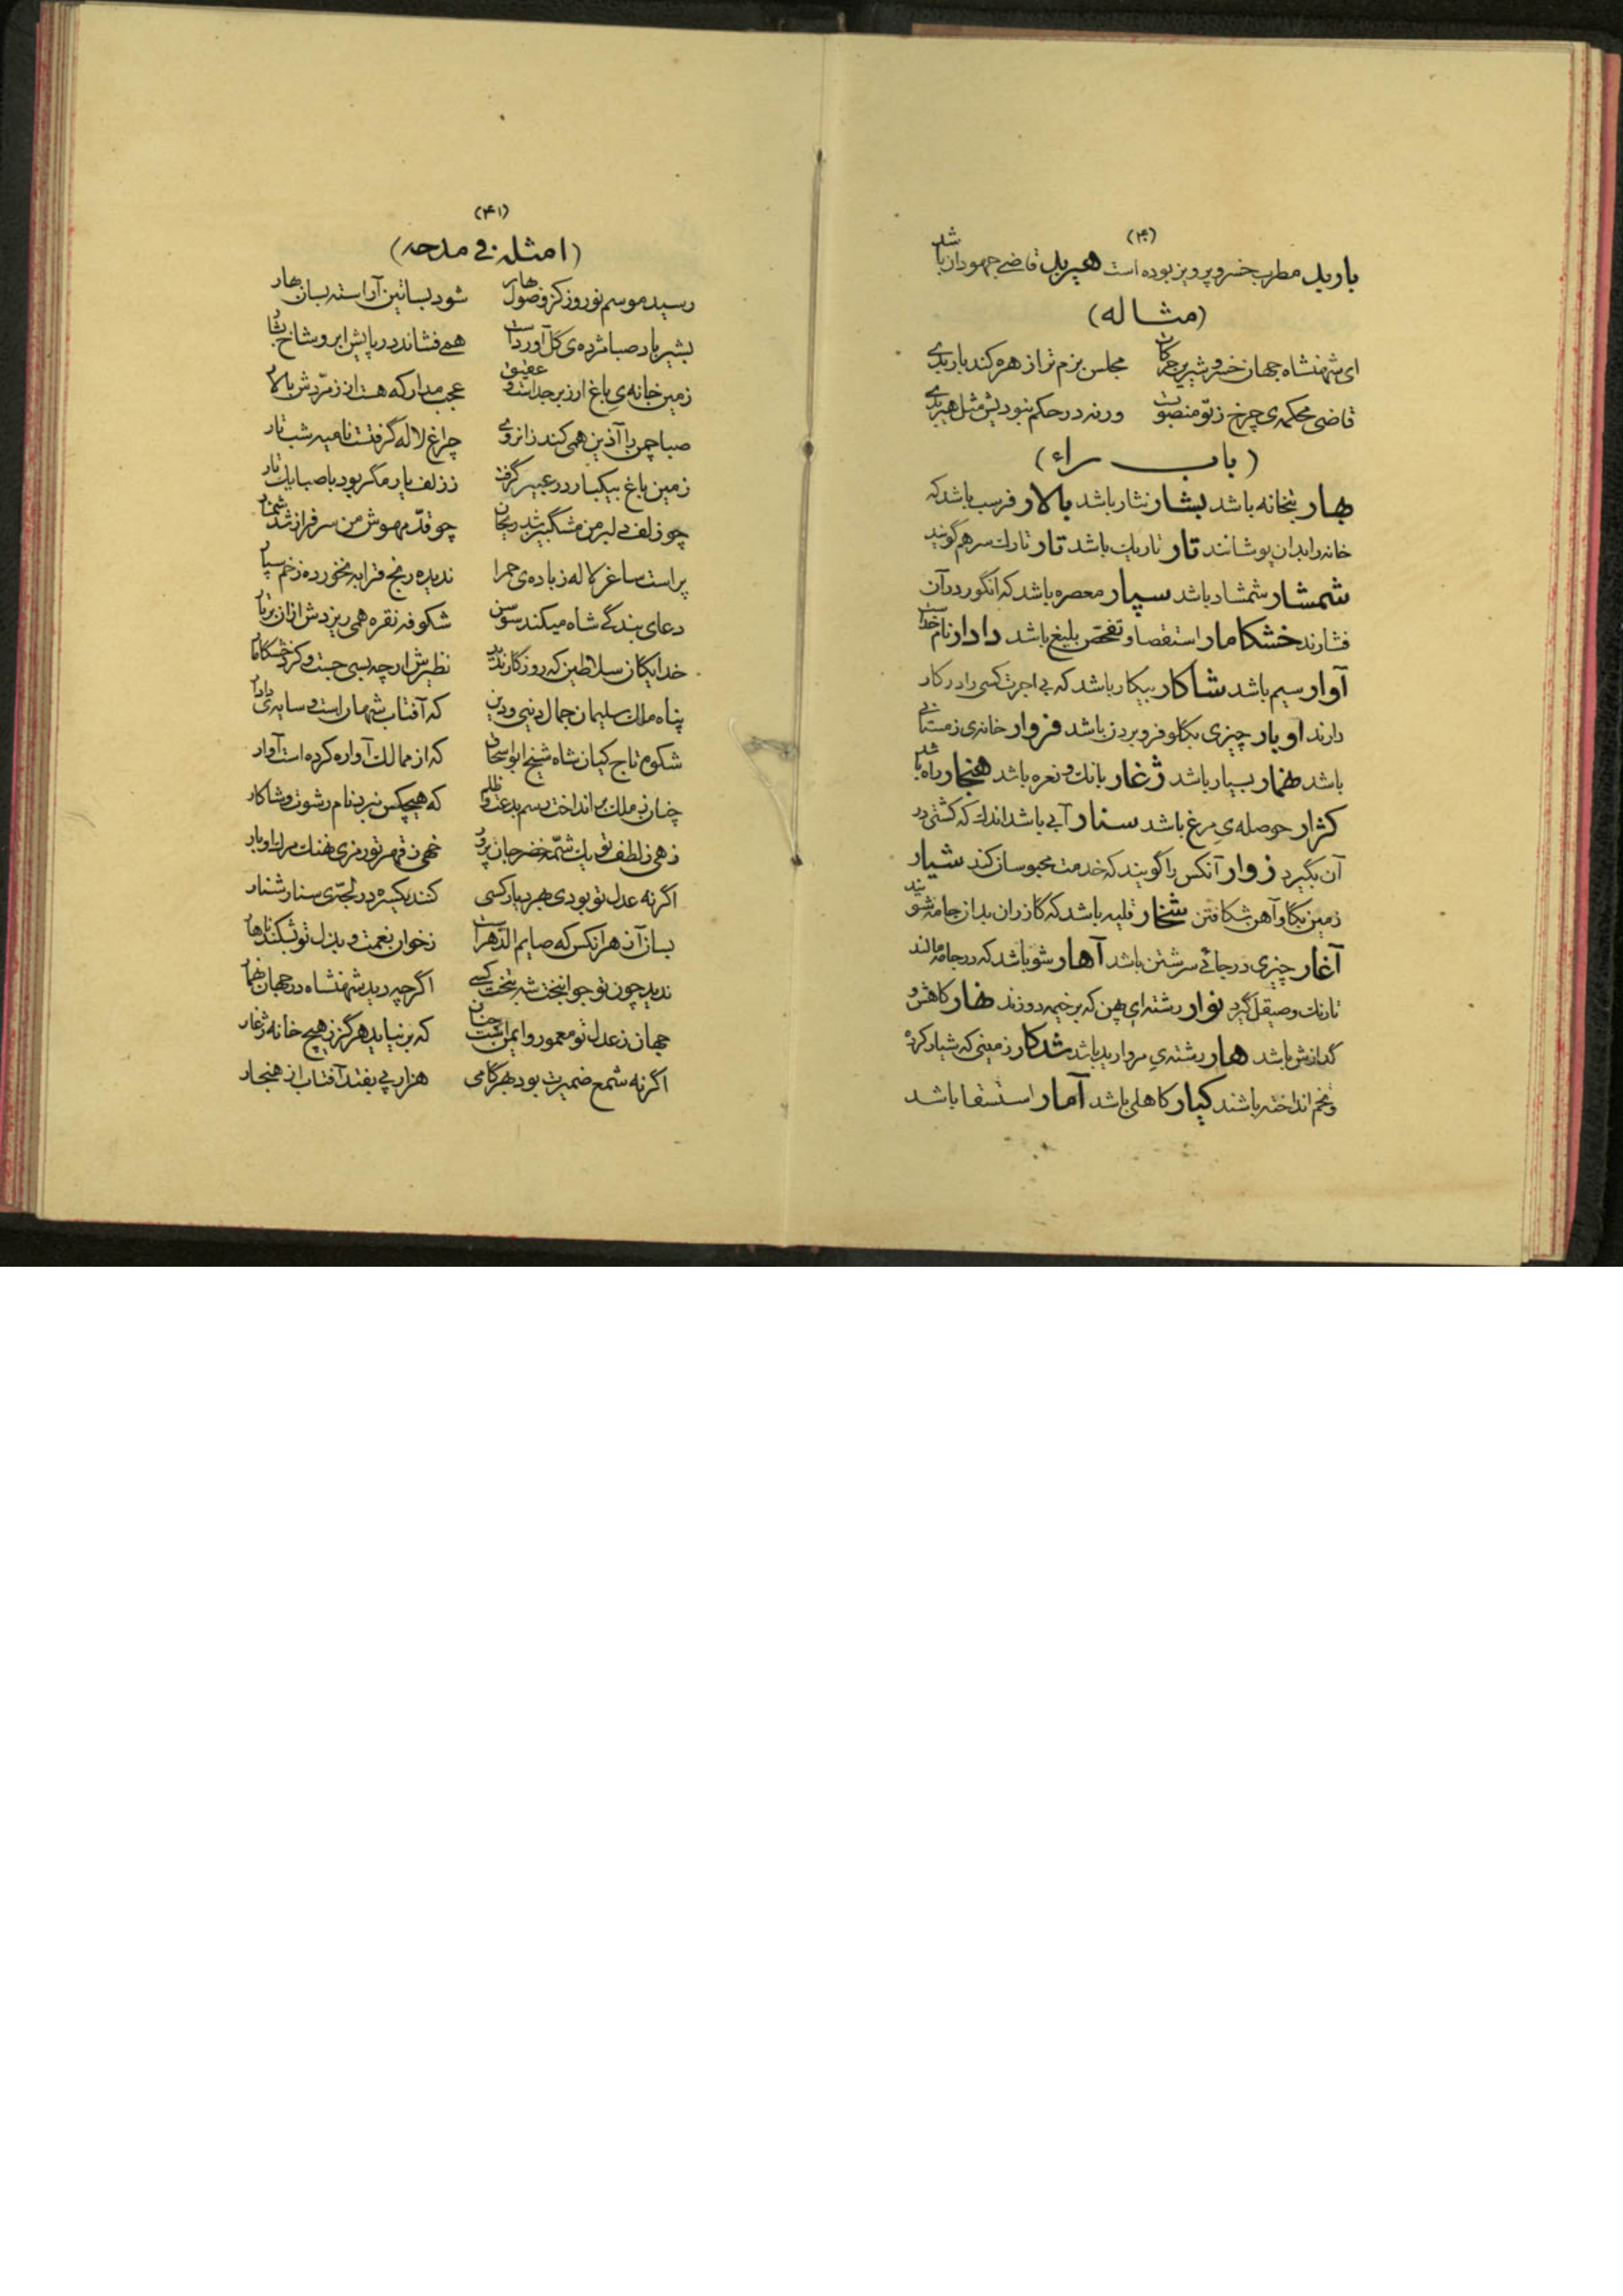 (۴۰)
باربد مطرب خسرو پرویز بوده است هیربد قاضی جهودان باشد
(مثاله)
ای شهنشاه جهان خسرو شیرین حرکات مجلس بزم ترا زهره کند باربدی
قاضی محکمه‌ی چرخ ز تو منصوبست ورنه در حکم نبودیش مثل هیربدی
(باب راء)
بهار بتخانه باشد بشار نثار باشد بالار فرسب باشد که
خانه را بدان پوشانند تار تاریك باشد تار تارك سر هم گویند
شمشار شمشاد باشد سپار معصره باشد که انگور در آن
فشارند خشکامار استقصا و تفحص بلیغ باشد دادار نام خداست
آوار سیم باشد شاکار بیکار باشد که بی اجرت کسی را در کار
دارند اوبار چیزی بکلو فرو بردن باشد فروار خانه‌ی زمستانی
باشد خمار بسیار باشد ژغار بانك و نعره باشد هنجار راه باشد
کژار حوصله‌ی مرغ باشد سنار آبی باشد اندك که کشتی در
آن بگیرد زوار آنکس را گویند که خدمت محبوسان کند شیار
زمین بگاو آهن شکافتن شخار قلیه باشد که کازران بدان جامه شویند
آغار چیزی در جائی سرشتن باشد آهار شو باشد که در جامه مالند
تا رنك و صیقل گیرد نوار رشته‌ای پهن که بر خیمه دوزند نهار کاهش و
گدازش باشد هار رشته‌ی مروارید باشد شدکار زمینی که شیار کرده
و تخم انداخته باشند کیار کاهلی باشد آمار استسقا باشد
(۴۱)
(امثله فی مدحه)
رسید موسم نوروز کز وصول بهار شود بساتین آراسته بسان بهار
بشیر باد صبا مژده‌ی گل آوردست همی فشاند در پایش ابر و شاخ بشار
زمین خانه‌ی باغ ار زبرجد است و عقیق عجب مدار که هست از زمردش بالار
صبا چمن را آذین همی کند زانروی چراغ لاله گرفتست نامیه شب تار
زمین باغ بیکبار در عبیر گرفت ز زلف یار مگر بود با صبا یك تار
چو زلف دلبر من مشکبیز شد ریحان چو قد مهوش من سرفراز شد شمشار
پر است ساغر لاله ز باده‌ی حمرا ندیده رنج قرابه نخورده زخم سپار
دعای بندگی شاه میکند سوسن شکوفه نقره همی ریزدش ازان بر بار
خدایکان سلاطین که روزگار ندید نظیرش ارچه بسی جست و کرد خشکامار
پناه ملك سلیمان جمال دنیی و دین که آفتاب شهان است و سایه‌ی دادار
شکوه تاج کیان شاه شیخ ابو اسحاق که از ممالك آواره کرده است آوار
چنان ز ملك بر انداخت رسم بدعت و ظلم که هیچکس نبرد نام رشوت و شاکار
زهی ز لطف تو یك شمه خضر جان پرور خهی ز قهر تو رمزی نهنك مرك اوبار
اگر نه عدل تو بودی بهر دیار کسی کند یکسره در لجه‌ی سنار شنار
بسا زآن هر آنکس که صایم الدهرست ز خوان نعمت و بذل تو بشکند ناهار
ندید چون تو جوانبخت شه بتخت کسی اگرچه دید شهنشاه در جهان نهمار
جهان ز عدل تو معمور و ایمن است چنان که بر نیاید هرگز ز هیچ خانه ژغار
اگر نه شمع ضمیرت بود بهر گامی هزار پی بفتد آفتاب از هنجار